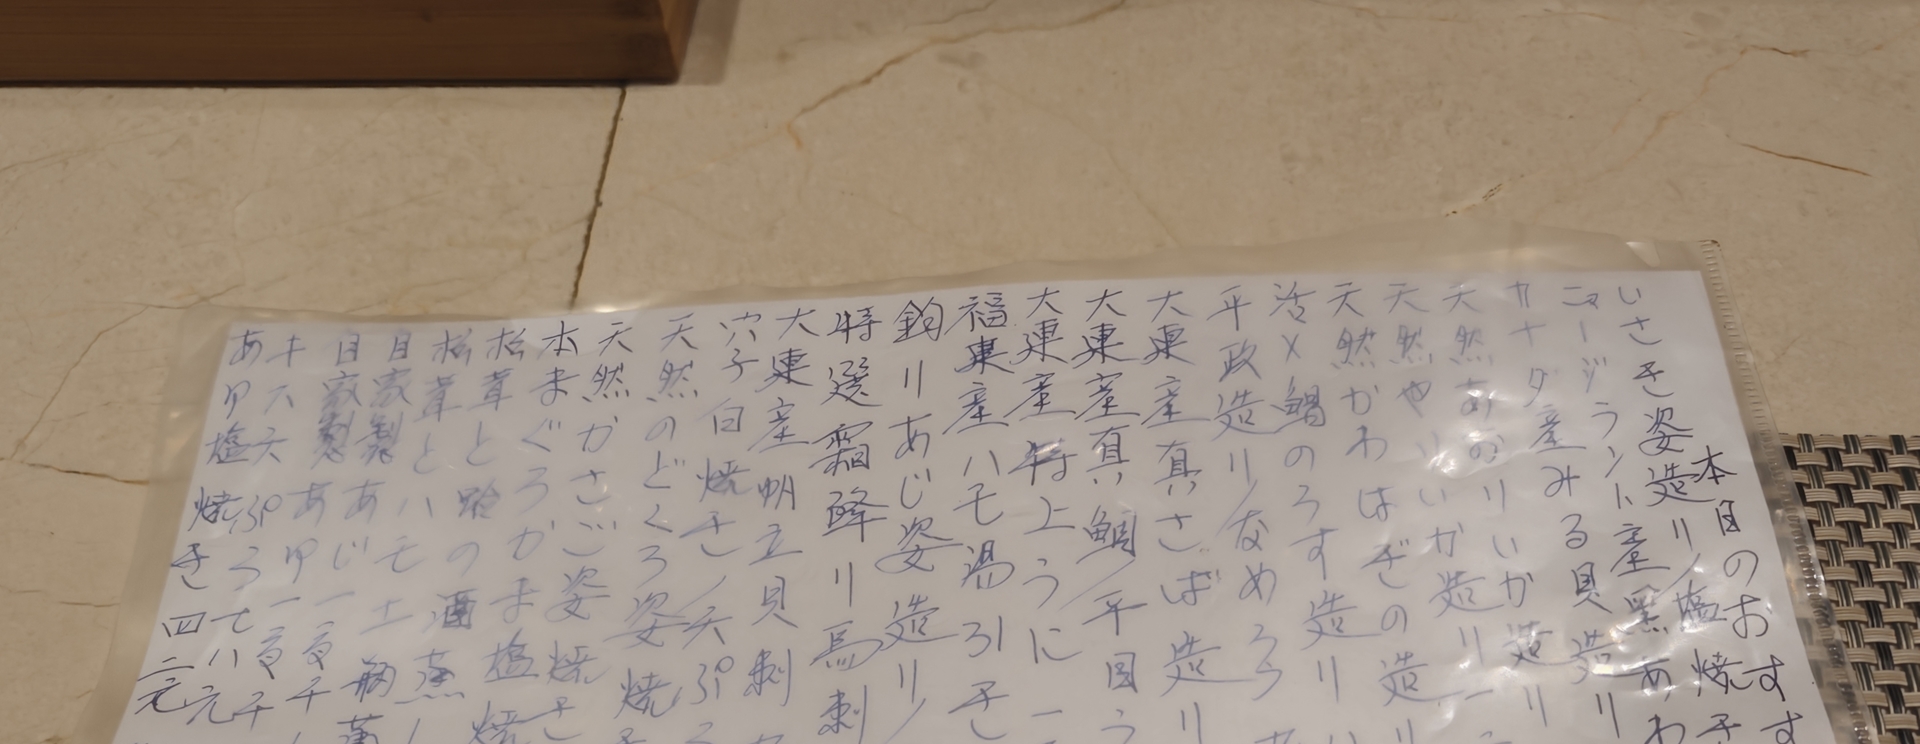 本日のおすす
いさき姿造り/塩焼き
ニュージランド産黒あわ
カナダ産みる貝造り
天然あおりいか造り
天然やりいか造り
天然かわはぎの造り
活〆鯛のろす造り
平政造り/なめろう
大東産真さば造り
大東産真鯛/平目う
大東産特上うに
福東産ハモ湯引き
釣りあじ姿造り/
特選霜降り馬刺
大東産帆立貝刺
穴子白焼き/天ぷら
天然のどくろ姿焼
天然がさご姿焼き
本まぐろかま塩焼
松茸と蛤の酒蒸し
松茸とハモ土瓶蒸
自家製あじ一夜干
自家製あゆ一夜干
キス天ぷら七八元
あゆ塩焼き四二元